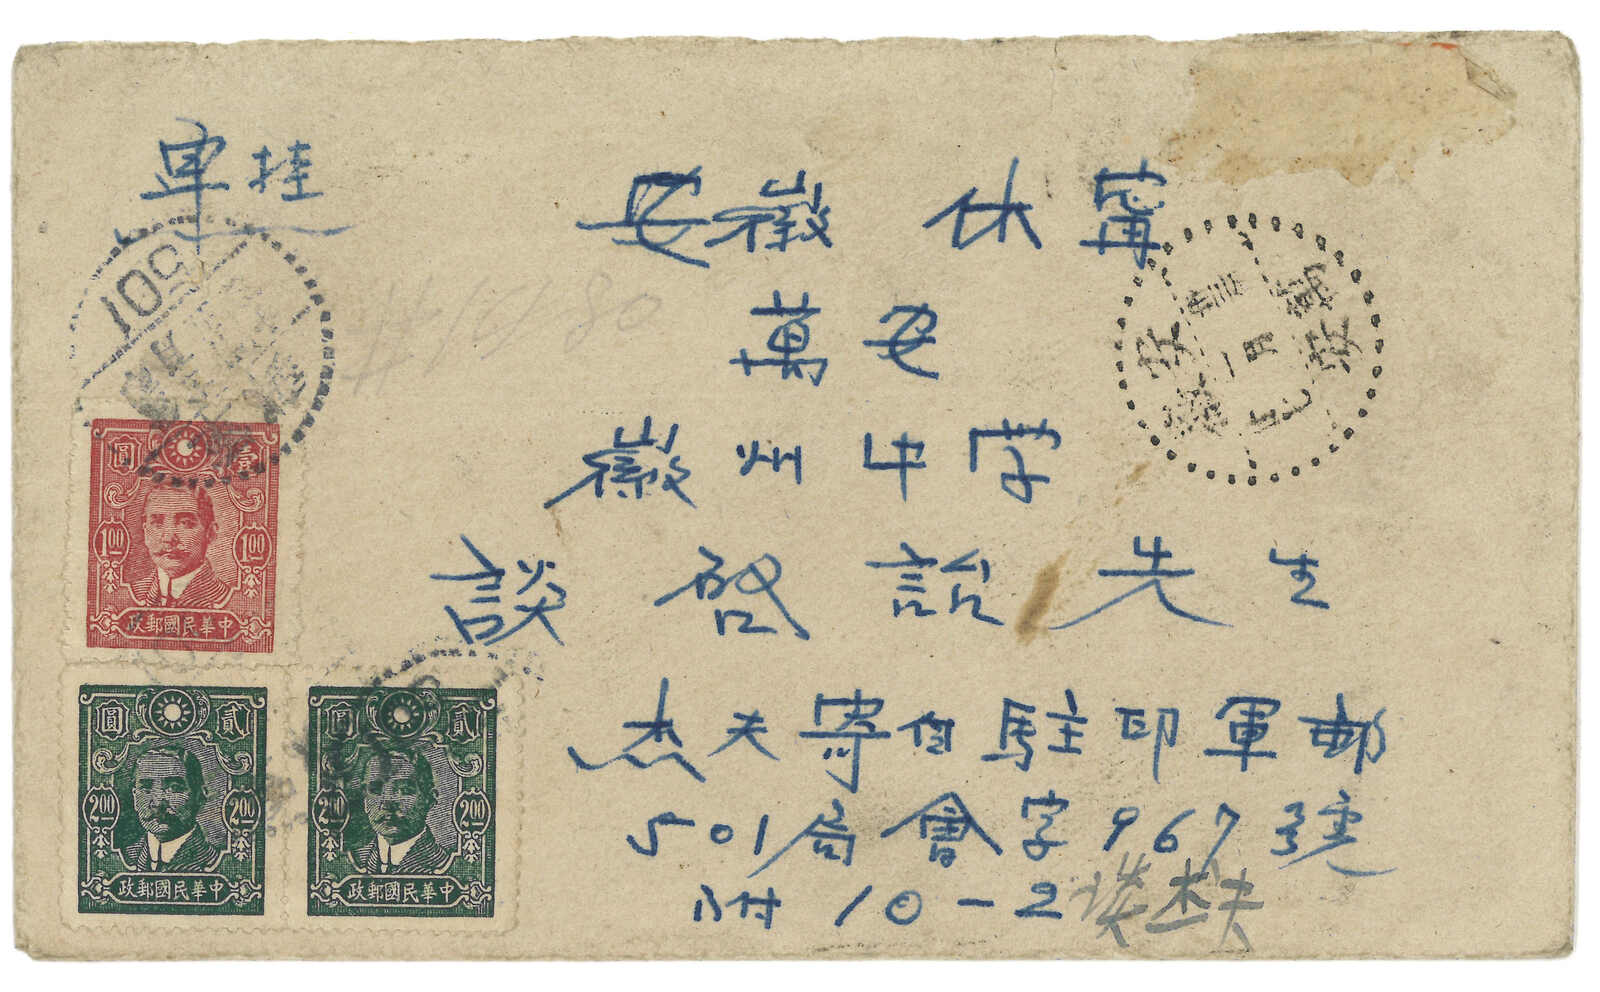 单挂
安徽 休寧
萬安
徽州中学
談 啓詒 先生
杰夫寄自駐印軍郵
501局會字967號
附10-2 谈杰夫
#15 80
501
萬安
安徽
卅三
一月
十七
圓 壹
1.00 1.00
政郵國民華中
圓 貳
2.00 2.00
政郵國民華中
圓 貳
2.00 2.00
政郵國民華中